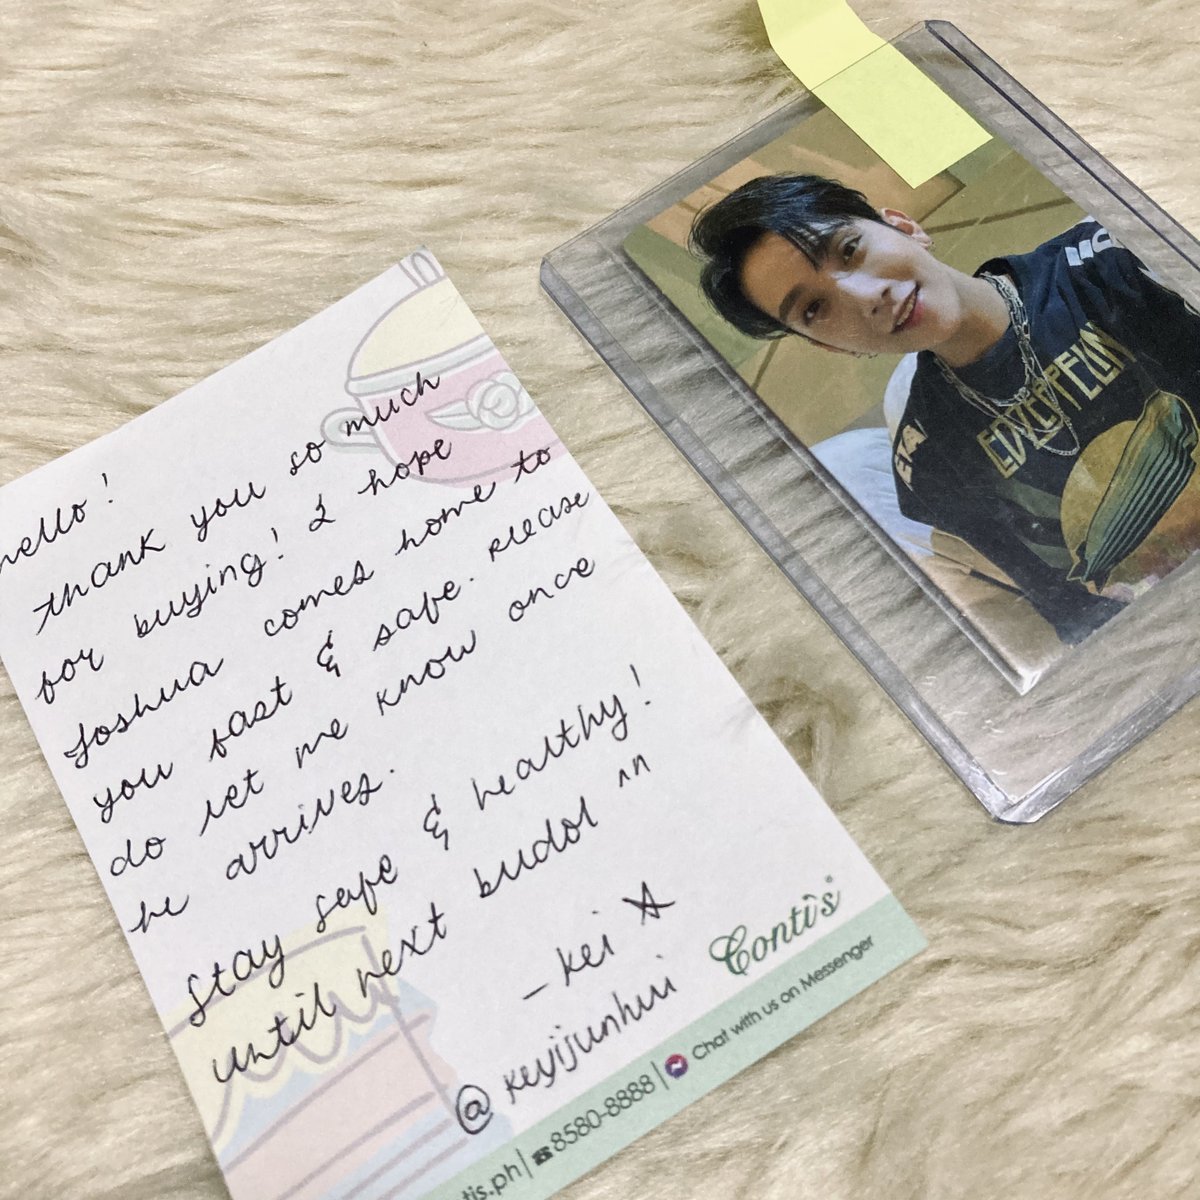 hello!
thank you so much
for buying! I hope
Joshua comes home to
you fast & safe. Please
do let me know once
he arrives.
Stay safe & healthy!
until next budol ^^
– kei ☆
@keiyijunhui
Conti's
tis.ph | ☎8580-8888 | Chat with us on Messenger
LED ZEPPELIN